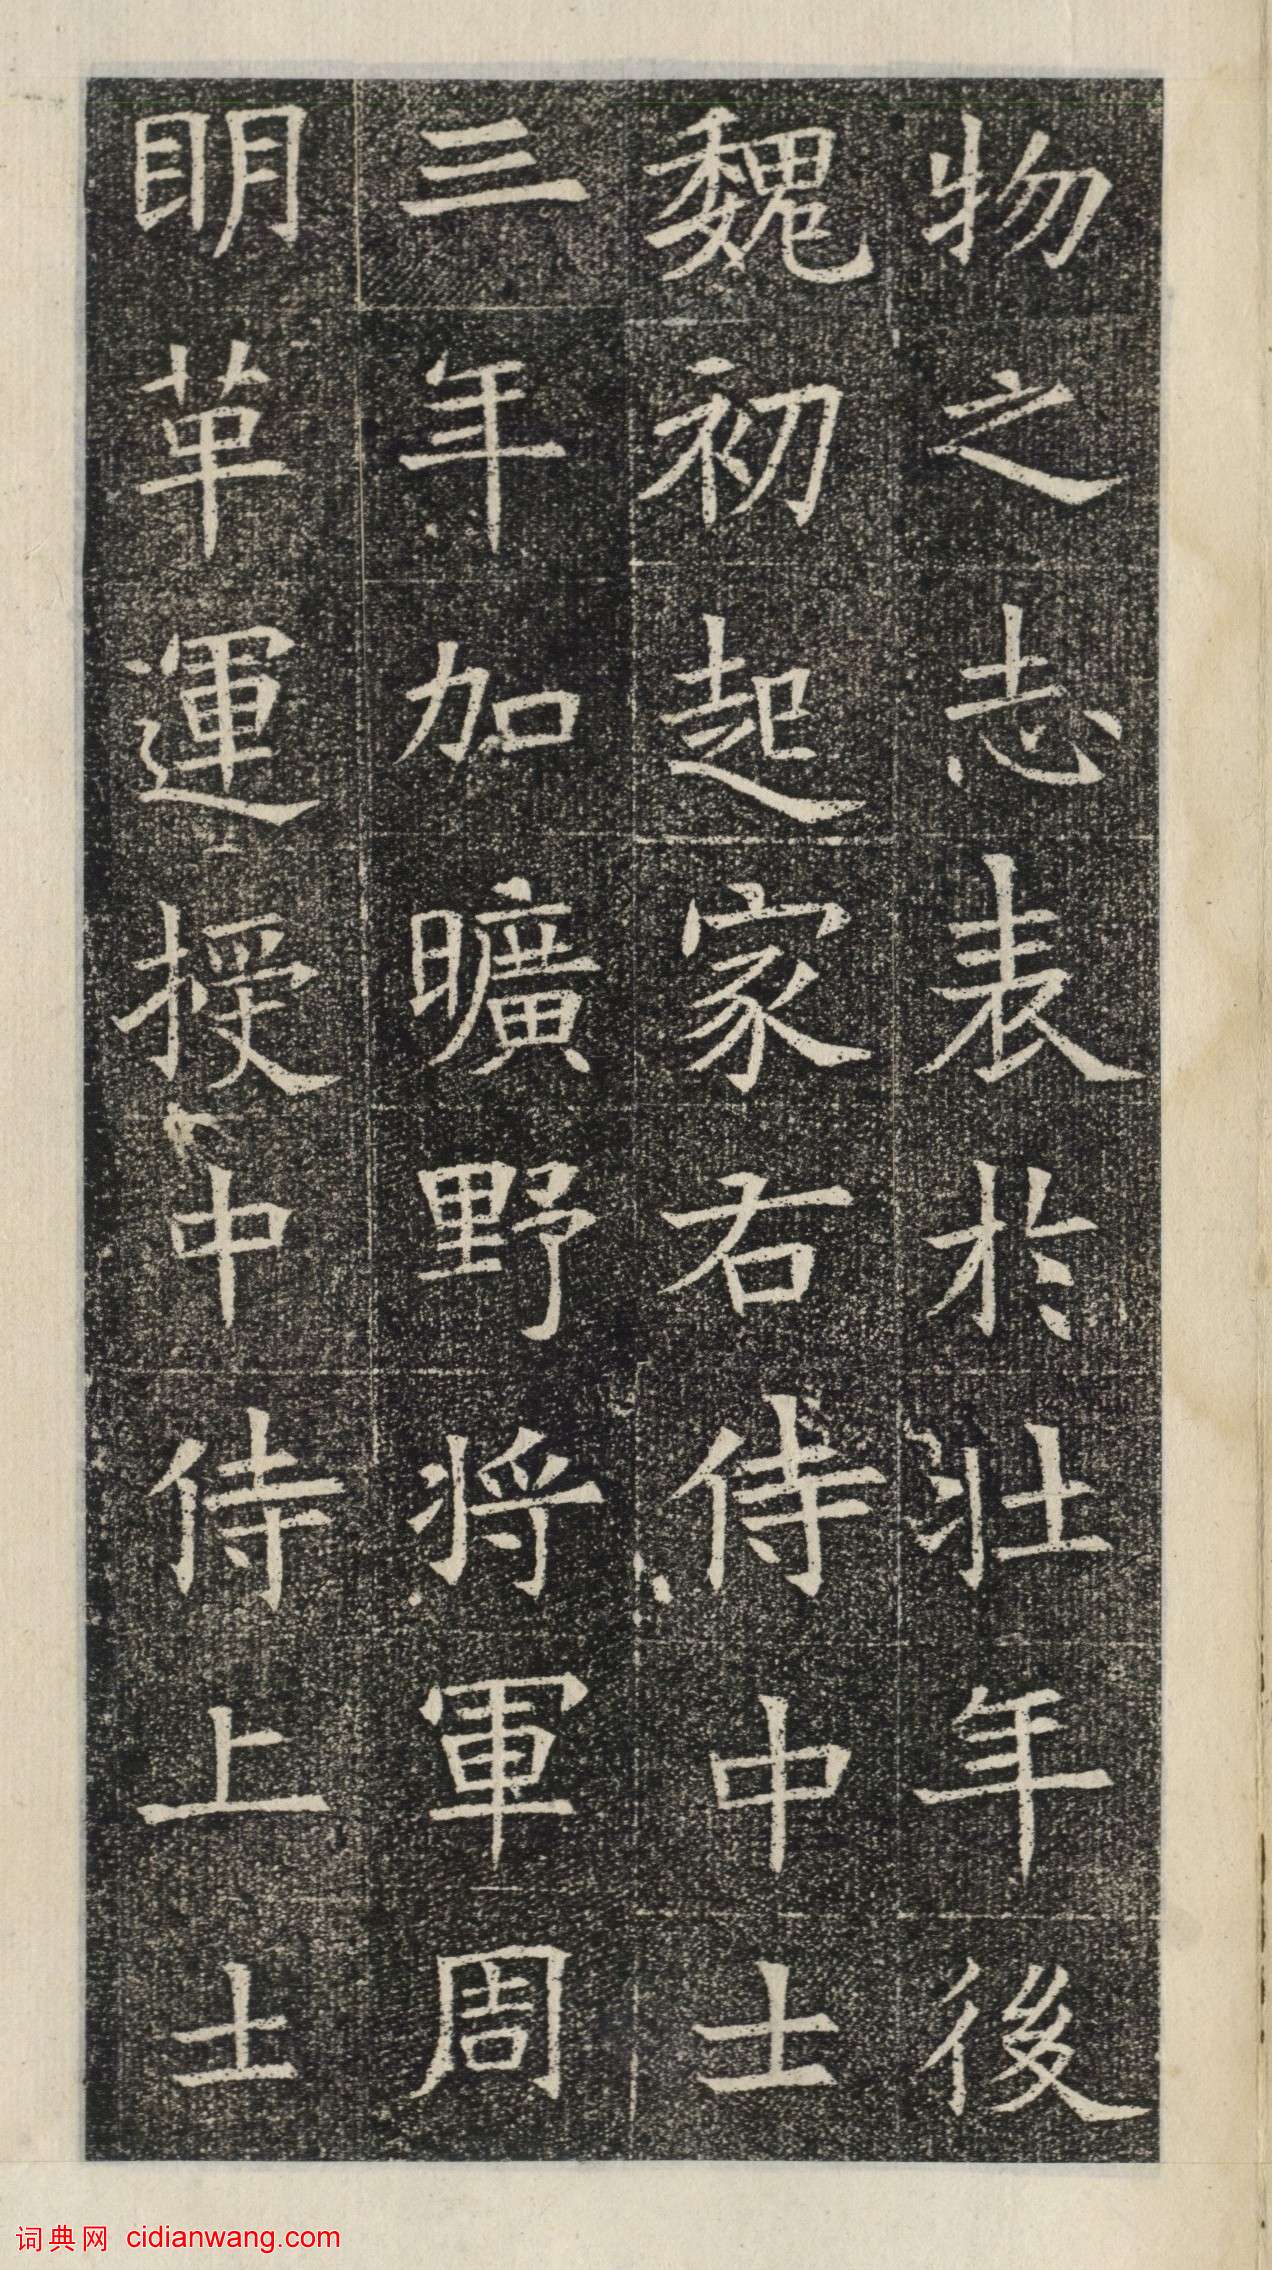 物之志表於壯年後
魏初起家右侍中士
三年加曠野將軍周
明革運授中侍上士
词典网 cidianwang.com